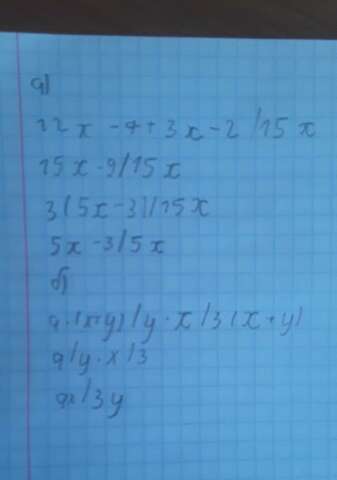 а)
12x - 7 + 3x - 2 / 15x
15x - 9 / 15x
3(5x - 3) / 15x
5x - 3 / 5x
б)
a · (x + y) / y · x / 3(x + y)
a / y · x / 3
ax / 3y